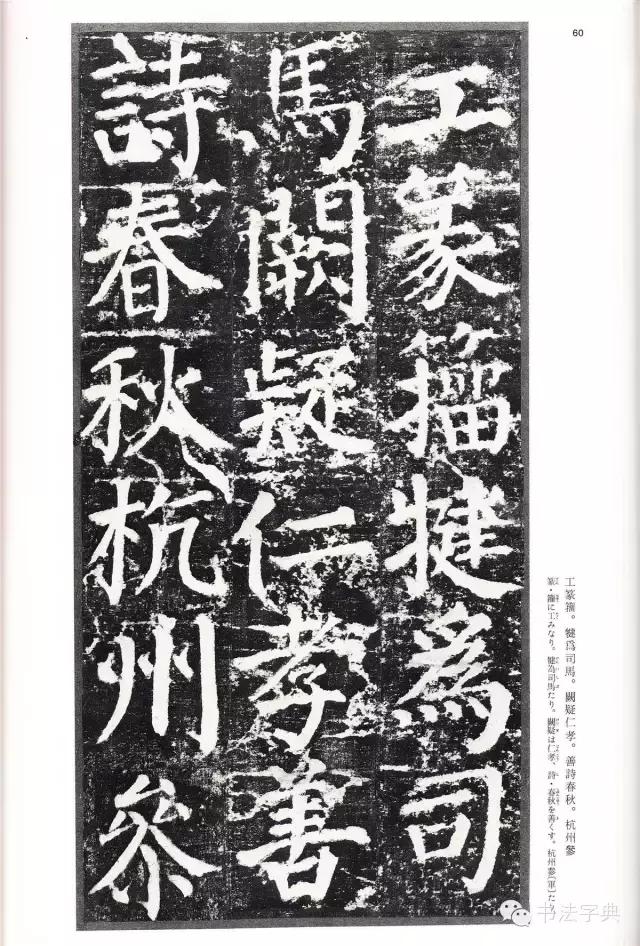 60
工篆籒揵為司
馬闕疑仁孝善
詩春秋杭州參
工篆籒。犍爲司馬。闕疑仁孝。善詩春秋。杭州參
篆・籒に工みなり。犍為司馬たり。闕疑は仁孝、詩・春秋を善くす。杭州參〔軍〕たり。
书法字典